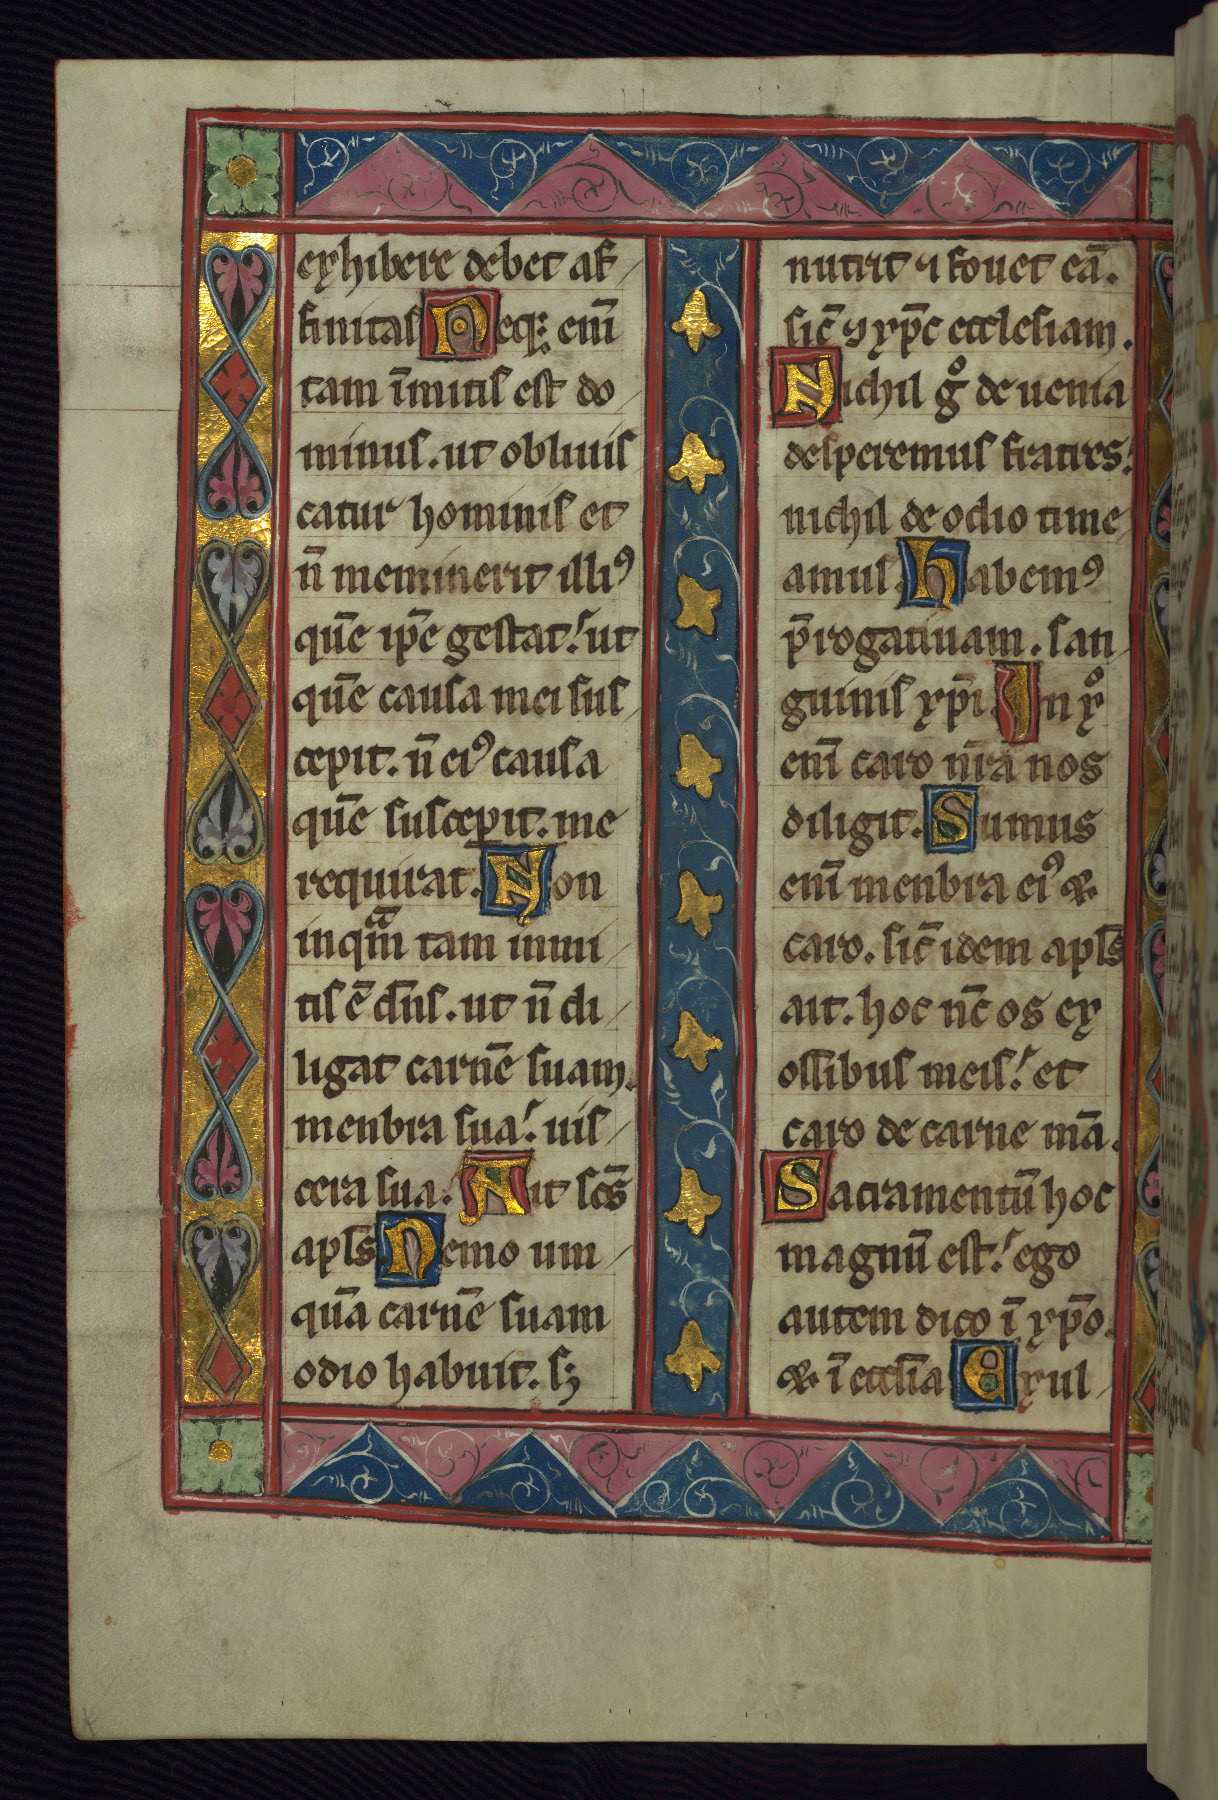 exhibere debet af
finitas Neq: enī
tam īmitis est do
minus. ut obliuis
catur hominis et
n̄ meminerit illiꝰ
quē ip̄e gestat. ut
quē causa mei sus
cepit. n̄ eiꝰ causa
quē suscepit. me
requirat. Non
inqͣm tam inmi
tis ē dn̄s. ut n̄ di
ligat carnē suam.
menbra sua. uis
cera sua. Ait sc̄s
apl̄s. Nemo um
quā carnē suam
odio habuit. sꝫ
nutrit ⁊ fouet eā.
sic̄ ⁊ xp̄c eccl̄esiam.
Nichil gͦ de uenia
desperemus fratres.
nichil de odio time
amus. Habemꝰ
p̄rogatiuam. san
guinis xp̄i. In xͦ
enī caro nr̄a nos
diligit. Sumus
enī menbra eiꝰ ⁊
caro. sic̄ idem apl̄s
ait. hoc nc̄ os ex
ossibus meis. et
caro de carne mā.
Sacramentū hoc
magnū est. ego
autem dico ī xp̄o.
⁊ ī eccl̄ia Exul